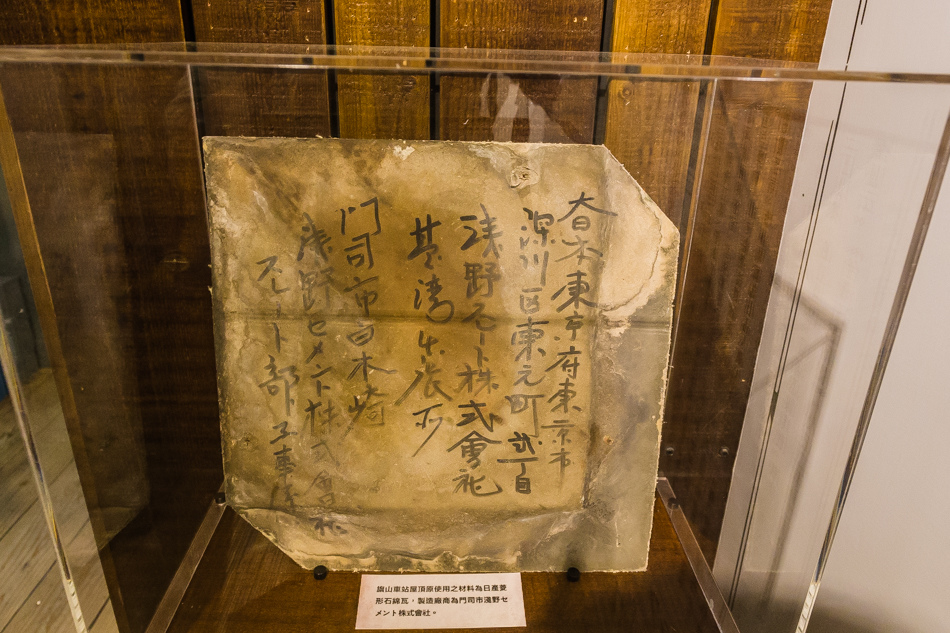 大日本東京府東京市
深川区東元町弐丁目
浅野スレート株式會社
臺湾出張所
門司市白木崎
浅野セメント株式會社
スレート部工事係
旗山車站屋頂原使用之材料為日產菱
形石綿瓦，製造廠商為門司市淺野セ
メント株式會社。